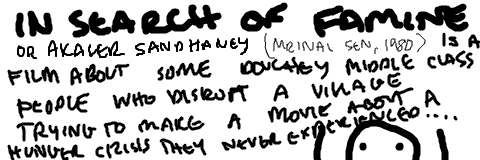 IN SEARCH OF FAMINE
OR AKALER SANDHANEY (MRINAL SEN, 1980) IS A
FILM ABOUT SOME DOUCHEY MIDDLE CLASS
PEOPLE WHO DISRUPT A VILLAGE
TRYING TO MAKE A MOVIE ABOUT A
HUNGER CRISIS THEY NEVER EXPERIENCED....